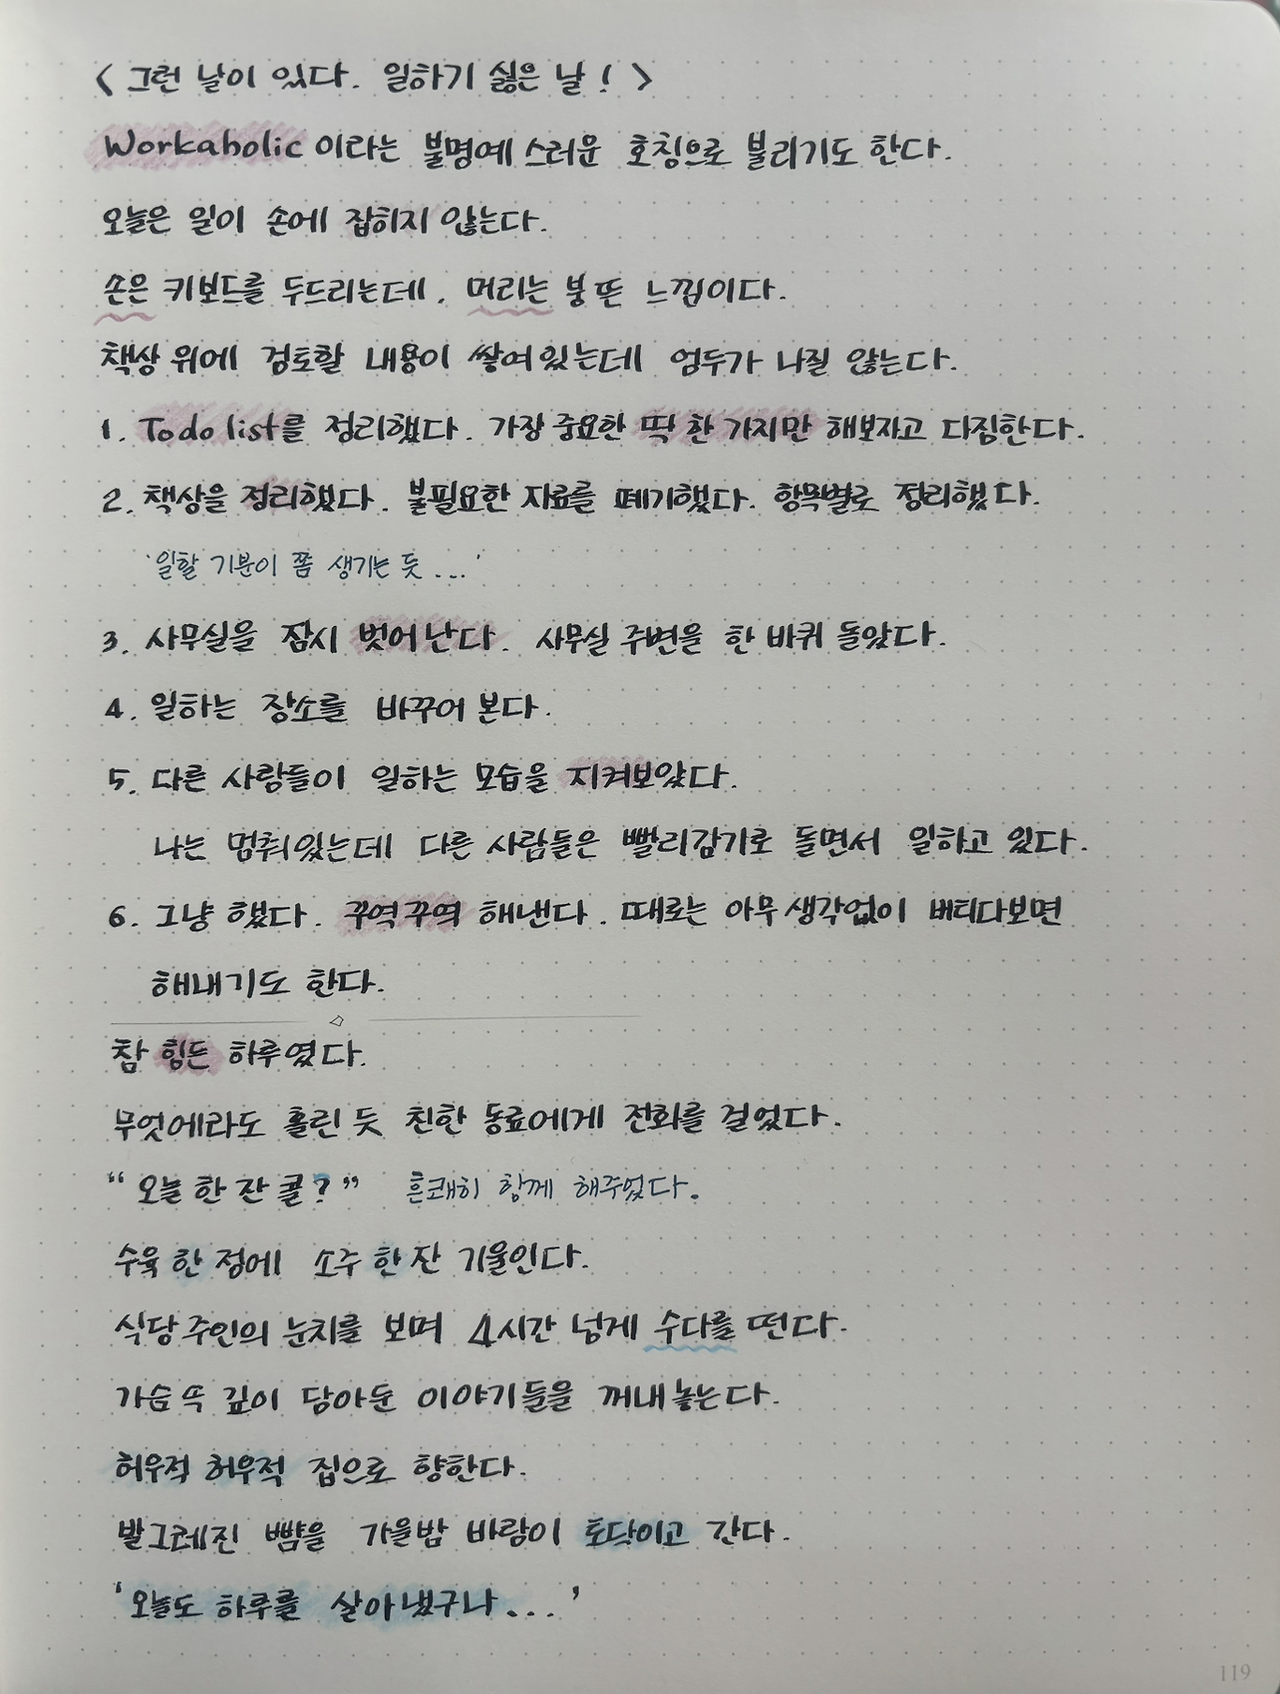 < 그런 날이 있다. 일하기 싫은 날! >
Workaholic 이라는 불명예 스러운 호칭으로 불리기도 한다.
오늘은 일이 손에 잡히지 않는다.
손은 키보드를 두드리는데, 머리는 붕 뜬 느낌이다.
책상 위에 검토할 내용이 쌓여있는데 엄두가 나질 않는다.
1. To do list를 정리했다. 가장 중요한 딱 한 가지만 해보자고 다짐한다.
2. 책상을 정리했다. 불필요한 자료를 폐기했다. 항목별로 정리했다.
'일할 기분이 쫌 생기는 듯...'
3. 사무실을 잠시 벗어난다. 사무실 주변을 한 바퀴 돌았다.
4. 일하는 장소를 바꾸어 본다.
5. 다른 사람들이 일하는 모습을 지켜보았다.
나는 멈춰있는데 다른 사람들은 빨리감기로 돌면서 일하고 있다.
6. 그냥 했다. 꾸역꾸역 해낸다. 때로는 아무 생각없이 버티다보면
해내기도 한다.
참 힘든 하루였다.
무엇에라도 홀린 듯 친한 동료에게 전화를 걸었다.
"오늘 한 잔 콜?" 흔쾌히 함께 해주었다.
수육 한 점에 소주 한 잔 기울인다.
식당 주인의 눈치를 보며 4시간 넘게 수다를 떤다.
가슴 속 깊이 담아둔 이야기들을 꺼내놓는다.
허우적 허우적 집으로 향한다.
발그레진 뺨을 가을밤 바람이 토닥이고 간다.
'오늘도 하루를 살아냈구나...'
119